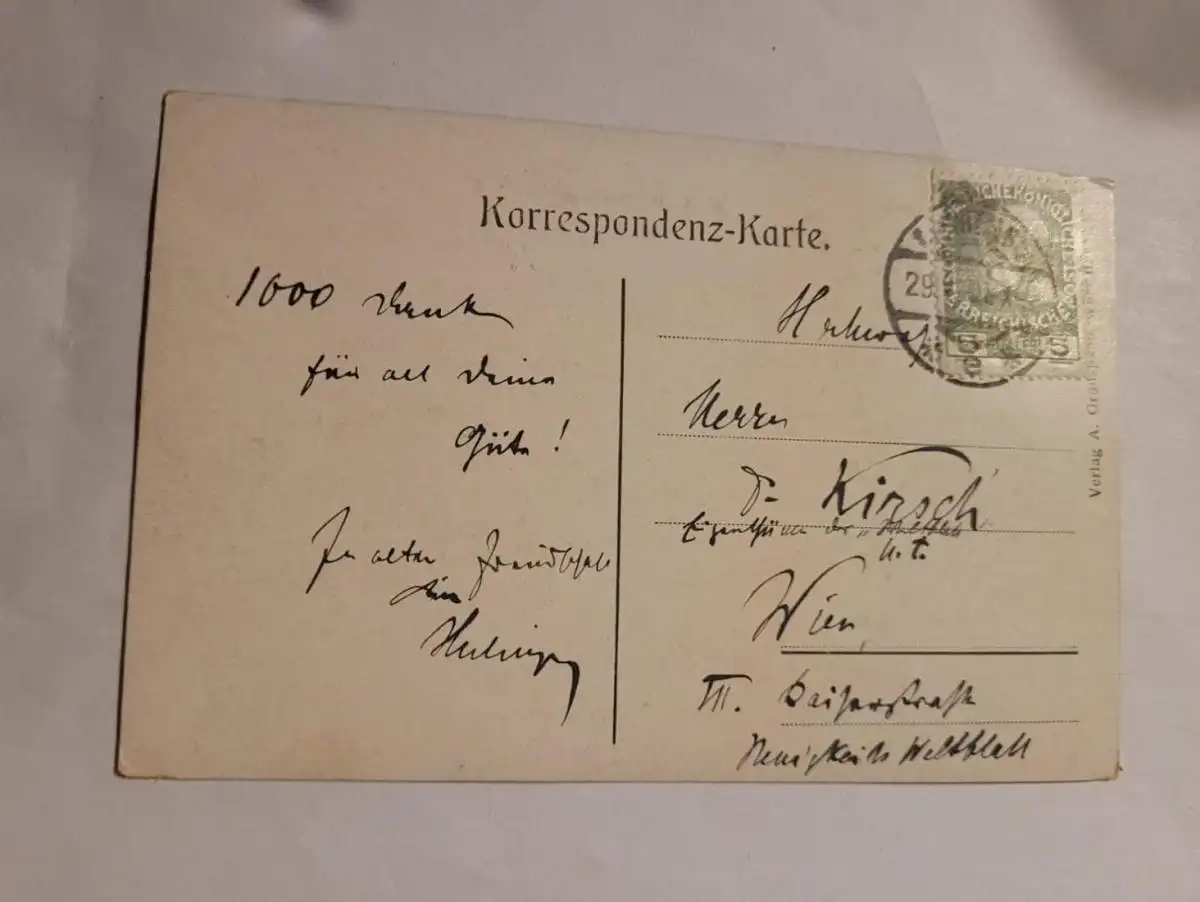 Korrespondenz-Karte.
1000 Dank
für all Deine
Güte!
In alter Freundschaft
Dein
Herrn
Dr Kirsch
Eigenthümer der
u. t.
Wien,
III. Kaiserstraße
Neuigkeits Weltblatt
29
5 5
Verlag A.